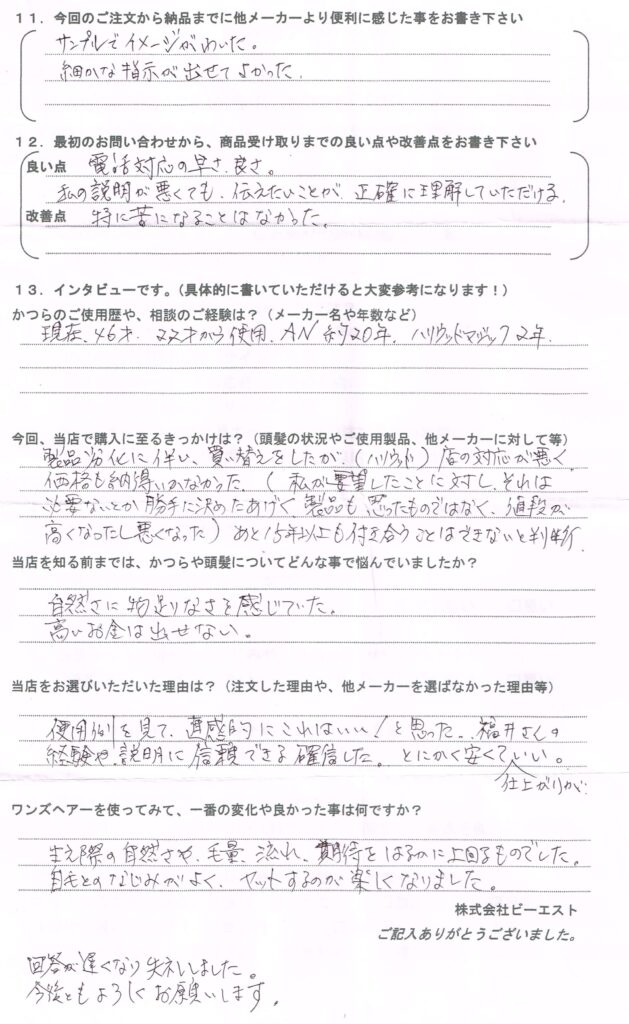 １１．今回のご注文から納品までに他メーカーより便利に感じた事をお書き下さい
サンプルでイメージがわいた。
細かな指示が出せてよかった
１２．最初のお問い合わせから、商品受け取りまでの良い点や改善点をお書き下さい
良い点 電話対応の早さ、良さ。
私の説明が悪くても、伝えたいことが、正確に理解していただける。
改善点 特に苦になることはなかった。
１３．インタビューです。（具体的に書いていただけると大変参考になります！）
かつらのご使用歴や、相談のご経験は？（メーカー名や年数など）
現在、46才、22才から使用、AN約20年、ハリウッドマジック2年、
今回、当店で購入に至るきっかけは？（頭髪の状況やご使用製品、他メーカーに対して等）
製品劣化に伴い、買い替えをしたが、（ハリウッド）店の対応が悪く、
価格も納得いかなかった。（私が要望したことに対し、それは
必要ないとか勝手に決めたあげく製品も思ったものではなく、値段が
高くなったし悪くなった）あと15年以上も付き合うことはできないと判断。
当店を知る前までは、かつらや頭髪についてどんな事で悩んでいましたか？
自然さに物足りなさを感じていた。
高いお金は出せない。
当店をお選びいただいた理由は？（注文した理由や、他メーカーを選ばなかった理由等）
使用例を見て、直感的にこれはいい！と思った。福井さんの
経験や、説明に信頼できる確信した。とにかく安くていい。
仕上がりが
ワンズヘアーを使ってみて、一番の変化や良かった事は何ですか？
生え際の自然さや、毛量、流れ、期待をはるかに上回るものでした。
自毛とのなじみがよく、セットするのが楽しくなりました。
株式会社ビーエスト
ご記入ありがとうございました。
回答が遅くなり失礼しました。
今後ともよろしくお願いします。